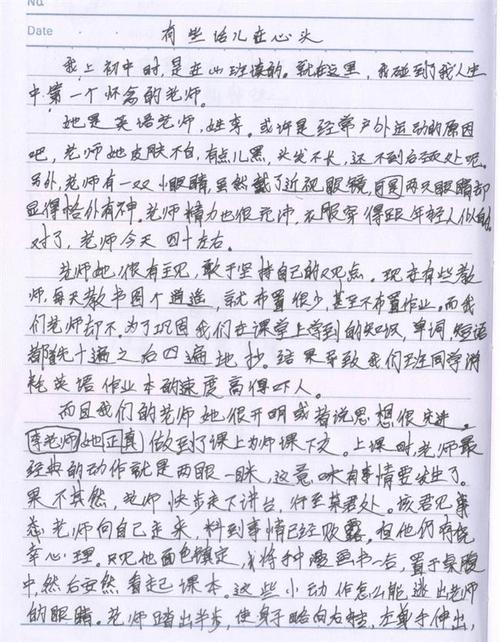 No.
Date
有些话儿在心头
我上初中时,是在山班读的。就在这里,我碰到了我人生
中第一个怀念的老师。
她是英语老师,姓李。或许是经常户外运动的原因
吧,老师她皮肤不白,有点儿黑,头发不长,还不到后颈处呢。
另外,老师有一双小眼睛虽然戴了近视眼镜,但两只眼睛却
显得格外有神。老师精力也很充沛,衣服穿得跟年轻人似的
对了,老师今天四十左右。
老师她很有主见,敢于坚持自己的观点。现在有些教
师,每天教书图个逍遥,就布置很少,甚至不布置作业。而我
们老师却不。为了巩固我们在课堂上学到的知识,单词,短语
都先十遍之后四遍地抄。结果导致我们班同学消
耗英语作业本的速度高得吓人。
而且我们的老师她很开明或者说思想很先进。
李老师她正真做到了课上为师课下友。上课时,老师最
经典的动作就是两眼一眯,这竟 有事情要发生了。
果不其然,老师快步走下讲台,行至某君处。该君见
老师向自己走来,料到事情已经败露。但他仍有侥
幸心理。只见他面色镇定,将手中漫画书一合,置于桌腹
中,然后安然看起课本。这些小动作怎么能逃出老师
的眼睛。老师踏出半步,使身子略向右 ,左单手伸出,